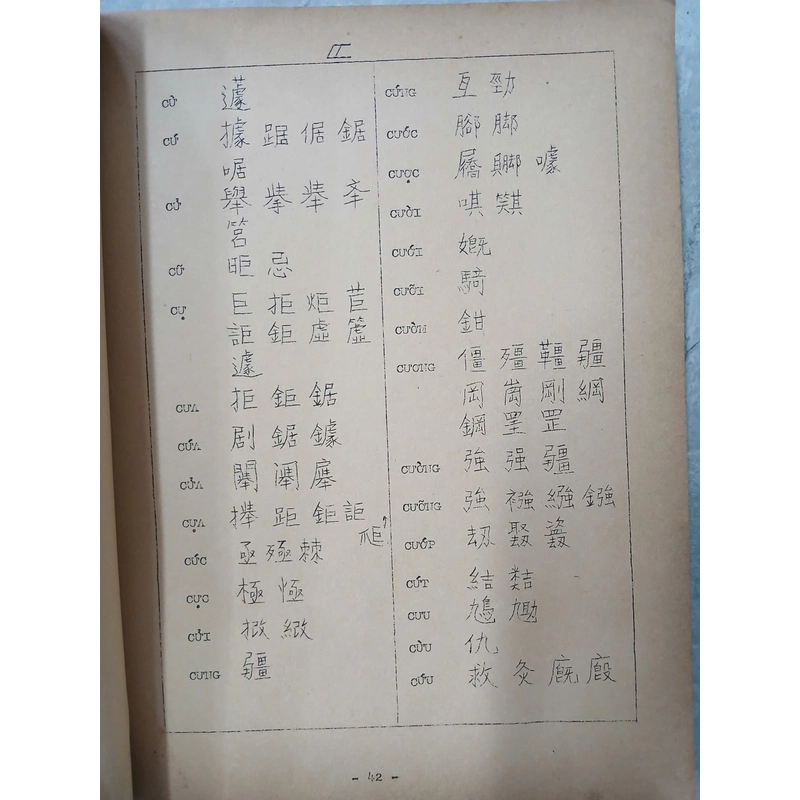 CỪ 蘧
CỨ 據 踞 倨 鋸
啹
CỬ 舉
筥
CỮ 昛 忌
CỰ 巨 拒 炬 苣
詎 鉅 虛 簴
遽
CƯA 拒 鉅 鋸
CỨA 剧 鋸 鐻
CỬA 闑
CỰA 距 鉅 詎
CỨC 亟 殛 棘
CỰC 極 恆
CỬI
CƯNG 疆
CỨNG 亙 勁
CƯỚC 腳 脚
CƯỢC 屩 噱
CƯỜI 唭
CƯỚI
CƯỠI 騎
CƯỜM 鉗
CƯƠNG 僵 殭 韁 疆
岡 崗 剛 綱
鋼 罡
CƯỜNG 強 强 疆
CƯỠNG 強 襁 繦 鏹
CƯỚP 刼
CỨT 結
CƯU 鳩 勼
CỪU 仇
CỨU 救 灸 廐 廄
- 42 -